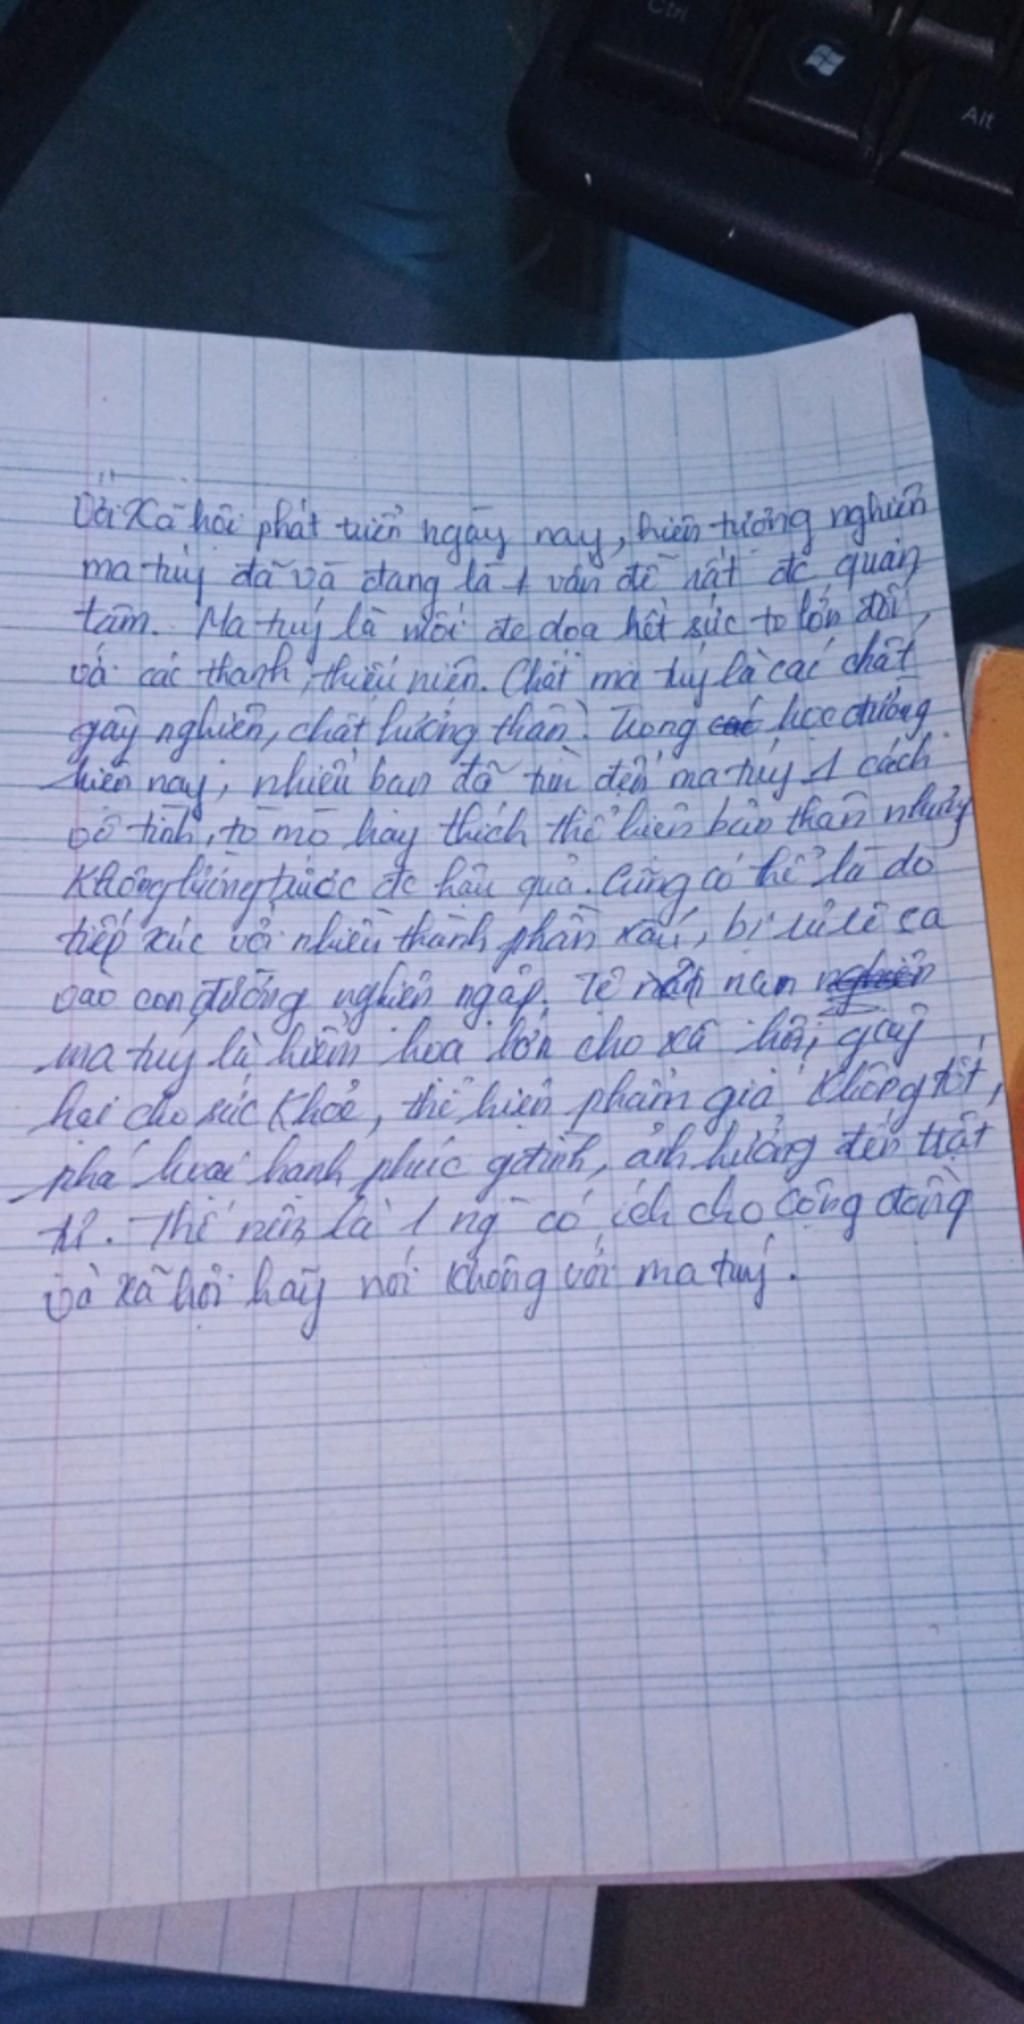 Ctrl
Alt
Với xã hội phát triển ngày nay, hiện tượng nghiện
ma túy đã và đang là 1 vấn đề rất đc quan
tâm. Ma túy là mối đe dọa hết sức to lớn đối
với các thanh, thiếu niên. Chất ma túy là các chất
gây nghiện, chất hướng thần. Trong học đường
hiện nay, nhiều bạn đã tìm đến ma túy 1 cách
vô tình, tò mò hay thích thể hiện bản thân nhưng
không lường trước đc hậu quả. Cũng có thể là do
tiếp xúc với nhiều thành phần xấu, bị lôi kéo sa
vào con đường nghiện ngập. Tệ nạn
ma túy là hiểm họa lớn cho xã hội, gây
hại cho sức khỏe, thể hiện phẩm giá không tốt,
phá hoại hạnh phúc gđình, ảnh hưởng đến trật
tự. Thế nên là 1 ng có ích cho cộng đồng
và xã hội hãy nói không với ma túy.